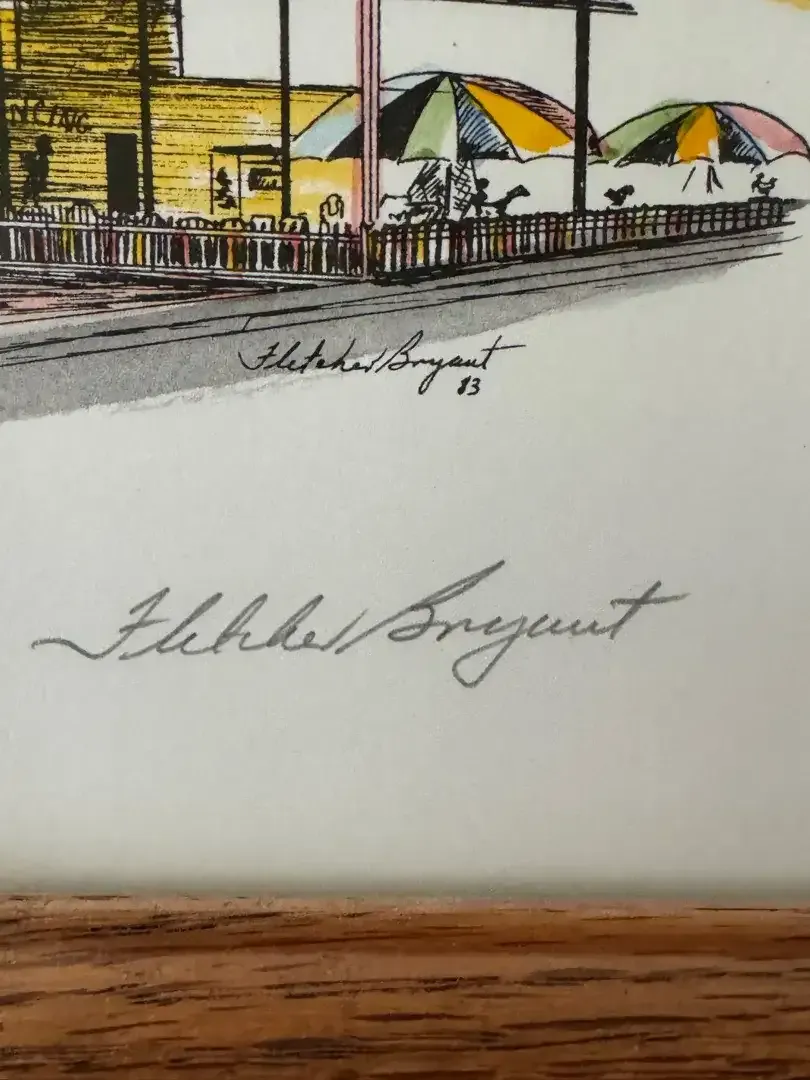 NCING
Fletcher Bryant
83
Fletcher Bryant